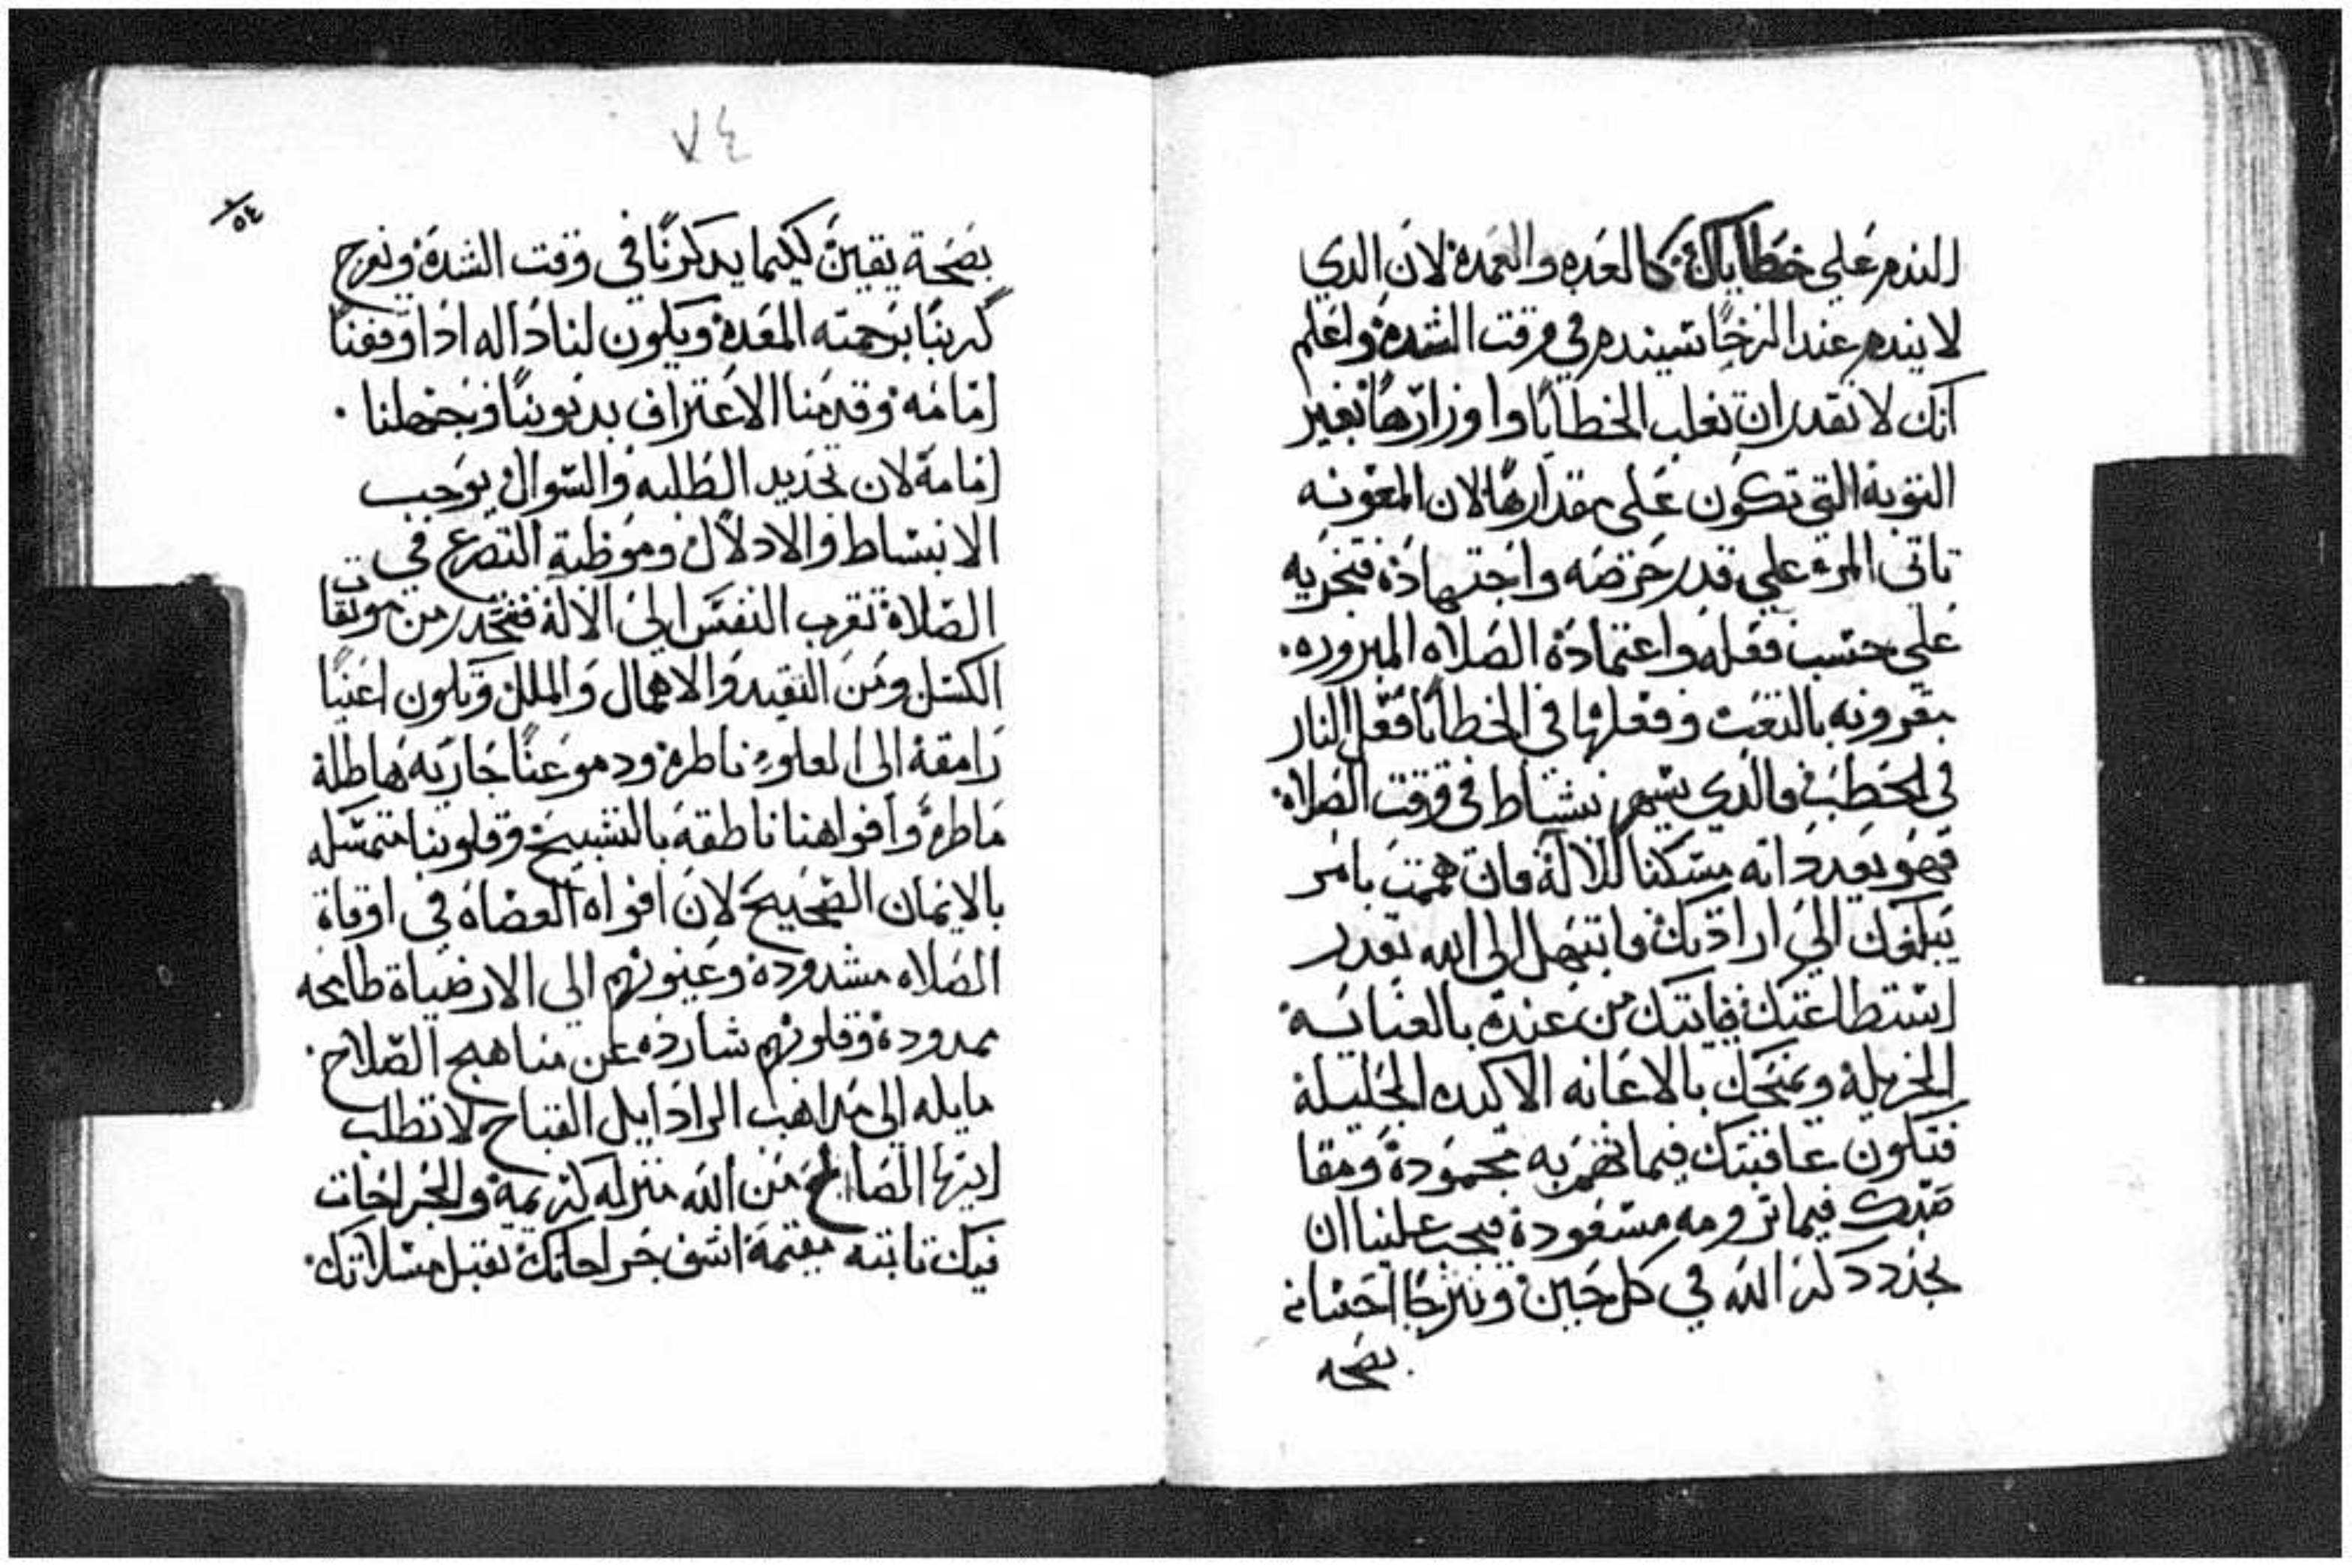 الندم علي خطاياك كالعده والعمدة لان الدي
لا يندم عند الرخا سيندم في وقت الشدة واعلم
انك لا تقدر ان تغلب الخطايا واوزارها بغير
التوبة التي تكون علي مقدارها لان المعونه
تاتي المرء علي قدر حرصه واجتهادة فتجزيه
علي حسب فعله واعتمادة الصلاه المبروره
بقرونه بالتعب وفعلها في الخطايا فعل النار
في الحطب والدي يسهر نشاط في وقت الصلاة
فهو يعد داته مسكنا للالة فان هممت بامر
يبلغك الي ارادتك فابتهل الي الله بقدر
استطاعتك فياتيك من عندة بالعنايه
الجزيلة ويمنحك بالاعانه الاكيده الجليلة
فتكون عاقبتك فيما تهم به محمودة ومقا
صدك فيما ترومه مسعودة فيجب علينا ان
نجدد دكر الله في كل حين ونترجا احسانه
بصحه
٧٤
٥٤
بصحة يقين لكيما يدكرنا في وقت الشدة ونفرج
كربنا برحمته المعدة ويكون لنا داله ادا وقفنا
امامه وقدمنا الاعتراف بدنوبنا وبجهلنا
امامة لان تجديد الطلبه والسوال يوجب
الانبساط والادلال وموظبة التضرع في
الصلاة تقرب النفس الي الالة فنحدر من موبقات
الكسل ومن التقيد والاهمال والملل وتكون اعنيا
رامقة الي العلوء ناظرة ودموعنا جاريه هاطلة
ماطرة وافواهنا ناطقه بالتسبيح وقلوبنا متمسكه
بالايمان الصحيح لان افواه العصاه في اوقاة
الصلاه مشدودة وعيونهم الي الارضياة طامحه
ممدودة وقلوبهم شارده عن مناهج الصلاح
مايله الي مداهب الرادايل القباح لا تطلب
ايها المصالح من الله منزله كريمة والجراحات
فيك ثابته مقيمة اشف جراحاتك تقبل مسلاتك